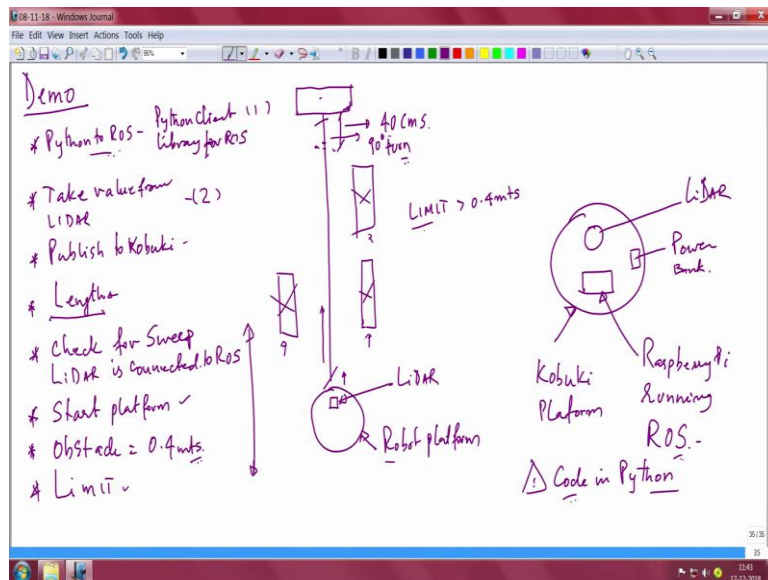 08-11-18 - Windows Journal
File Edit View Insert Actions Tools Help
95%
Demo
* Python to ROS - Python Client (1)
Library for ROS
* Take value from
LIDAR -(2)
* Publish to Kobuki -
* Lengths
* Check for Sweep
LiDAR is connected to ROS
* Start platform
* Obstacle = 0.4 mts.
* Limit
40 cms.
90° turn
LIMIT > 0.4 mts
LiDAR
Robot platform
LiDAR
Power
Bank.
Kobuki
Plaform
Raspberry Pi
Running
ROS.-
Code in Python
35/35
35
11:43
17-12-2018